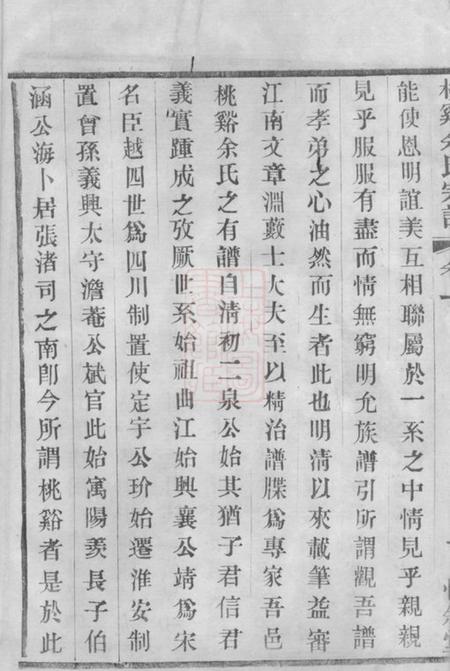 桃谿余氏宗譜
能使恩明誼美互相聯屬於一系之中情見乎親親
見乎服服有盡而情無窮明允族譜引所謂觀吾譜
而孝弟之心油然而生者此也明清以來載筆益審
江南文章淵藪士大夫至以精治譜牒爲專家吾邑
桃谿余氏之有譜自清初二泉公始其猶子君信君
義實踵成之攷厥世系始祖曲江始興襄公靖爲宋
名臣越四世爲四川制置使定宇公玠始遷淮安制
置曾孫義興太守澹菴公斌官此始寓陽羨長子伯
涵公海卜居張渚司之南卽今所謂桃谿者是於此